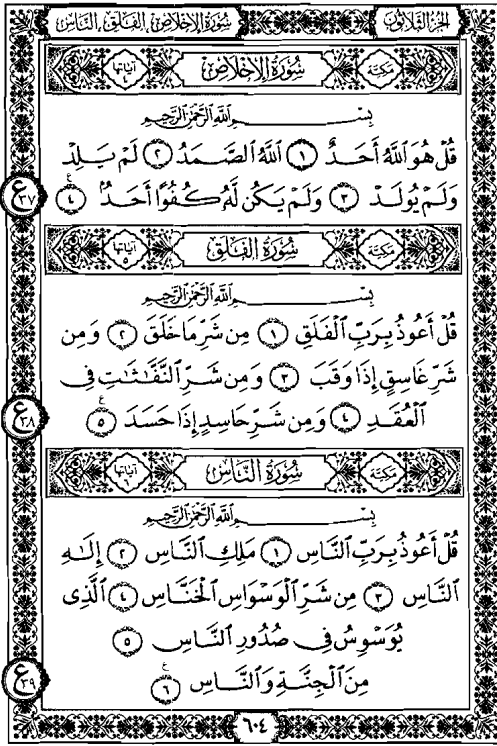 سُورَةُ الإِخْلَاصِ، الفَلَقِ، النَّاسِ
الجُزْءُ الثَّلَاثُونَ
مَكِّيَّة سُورَةُ الإِخْلَاصِ آيَاتُهَا ٤
بِسْمِ اللَّهِ الرَّحْمَٰنِ الرَّحِيمِ
قُلْ هُوَ ٱللَّهُ أَحَدٌ ١ ٱللَّهُ ٱلصَّمَدُ ٢ لَمْ يَلِدْ
وَلَمْ يُولَدْ ٣ وَلَمْ يَكُن لَّهُۥ كُفُوًا أَحَدٌۢ ٤ ع ٣٧
مَكِّيَّة سُورَةُ الفَلَقِ آيَاتُهَا ٥
بِسْمِ اللَّهِ الرَّحْمَٰنِ الرَّحِيمِ
قُلْ أَعُوذُ بِرَبِّ ٱلْفَلَقِ ١ مِن شَرِّ مَا خَلَقَ ٢ وَمِن
شَرِّ غَاسِقٍ إِذَا وَقَبَ ٣ وَمِن شَرِّ ٱلنَّفَّٰثَٰتِ فِى
ٱلْعُقَدِ ٤ وَمِن شَرِّ حَاسِدٍ إِذَا حَسَدَ ٥ ع ٣٨
مَكِّيَّة سُورَةُ النَّاسِ آيَاتُهَا ٦
بِسْمِ اللَّهِ الرَّحْمَٰنِ الرَّحِيمِ
قُلْ أَعُوذُ بِرَبِّ ٱلنَّاسِ ١ مَلِكِ ٱلنَّاسِ ٢ إِلَٰهِ
ٱلنَّاسِ ٣ مِن شَرِّ ٱلْوَسْوَاسِ ٱلْخَنَّاسِ ٤ ٱلَّذِى
يُوَسْوِسُ فِى صُدُورِ ٱلنَّاسِ ٥
مِنَ ٱلْجِنَّةِ وَٱلنَّاسِ ٦ ع ٣٩
٦٠٤